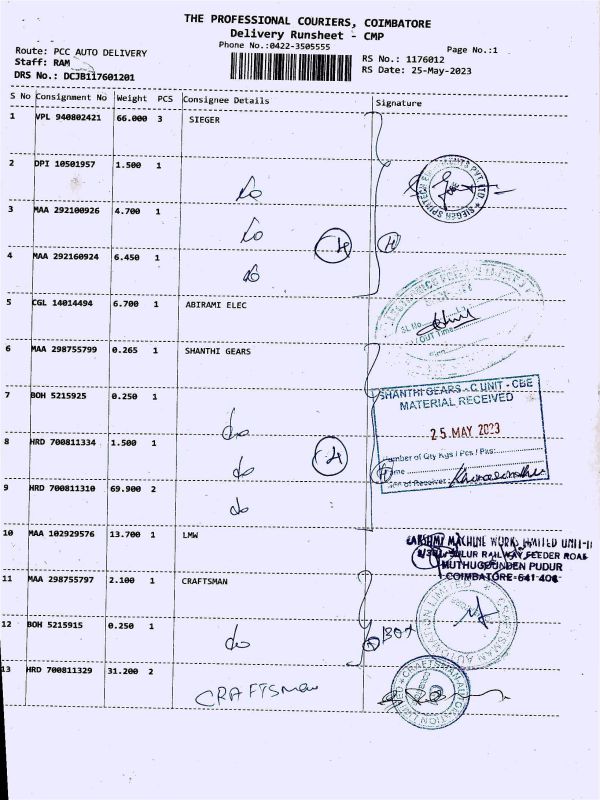 THE PROFESSIONAL COURIERS, COIMBATORE
Delivery Runsheet - CMP
Phone No.:0422-3505555
Page No.:1
Route: PCC AUTO DELIVERY
Staff: RAM
DRS No.: DCJB117601201
RS No.: 1176012
RS Date: 25-May-2023
S No Consignment No Weight PCS Consignee Details Signature
1 VPL 940802421 66.000 3 SIEGER
2 DPI 10501957 1.500 1 do
3 MAA 292100926 4.700 1 do
4 MAA 292160924 6.450 1 do
4
4
5 CGL 14014494 6.700 1 ABIRAMI ELEC
SL No
/ OUT Time
6 MAA 298755799 0.265 1 SHANTHI GEARS
SHANTHI GEARS - C UNIT - CBE
MATERIAL RECEIVED
25 MAY 2023
Number of Qty Kgs / Pcs / Pks:
7 BOH 5215925 0.250 1 do
8 HRD 700811334 1.500 1 do
4
4
9 HRD 700811310 69.900 2 do
10 MAA 102929576 13.700 1 LMW
LAKSHMI MACHINE WORKS LIMITED UNIT-II
SULUR RAILWAY FEEDER ROAD
MUTHUGOUNDEN PUDUR
COIMBATORE-641 406
11 MAA 298755797 2.100 1 CRAFTSMAN
CRAFTSMAN AUTOMATION LIMITED
12 BOH 5215915 0.250 1 do
13 HRD 700811329 31.200 2 CRAFTSMAN
CRAFTSMAN AUTOMATION LIMITED